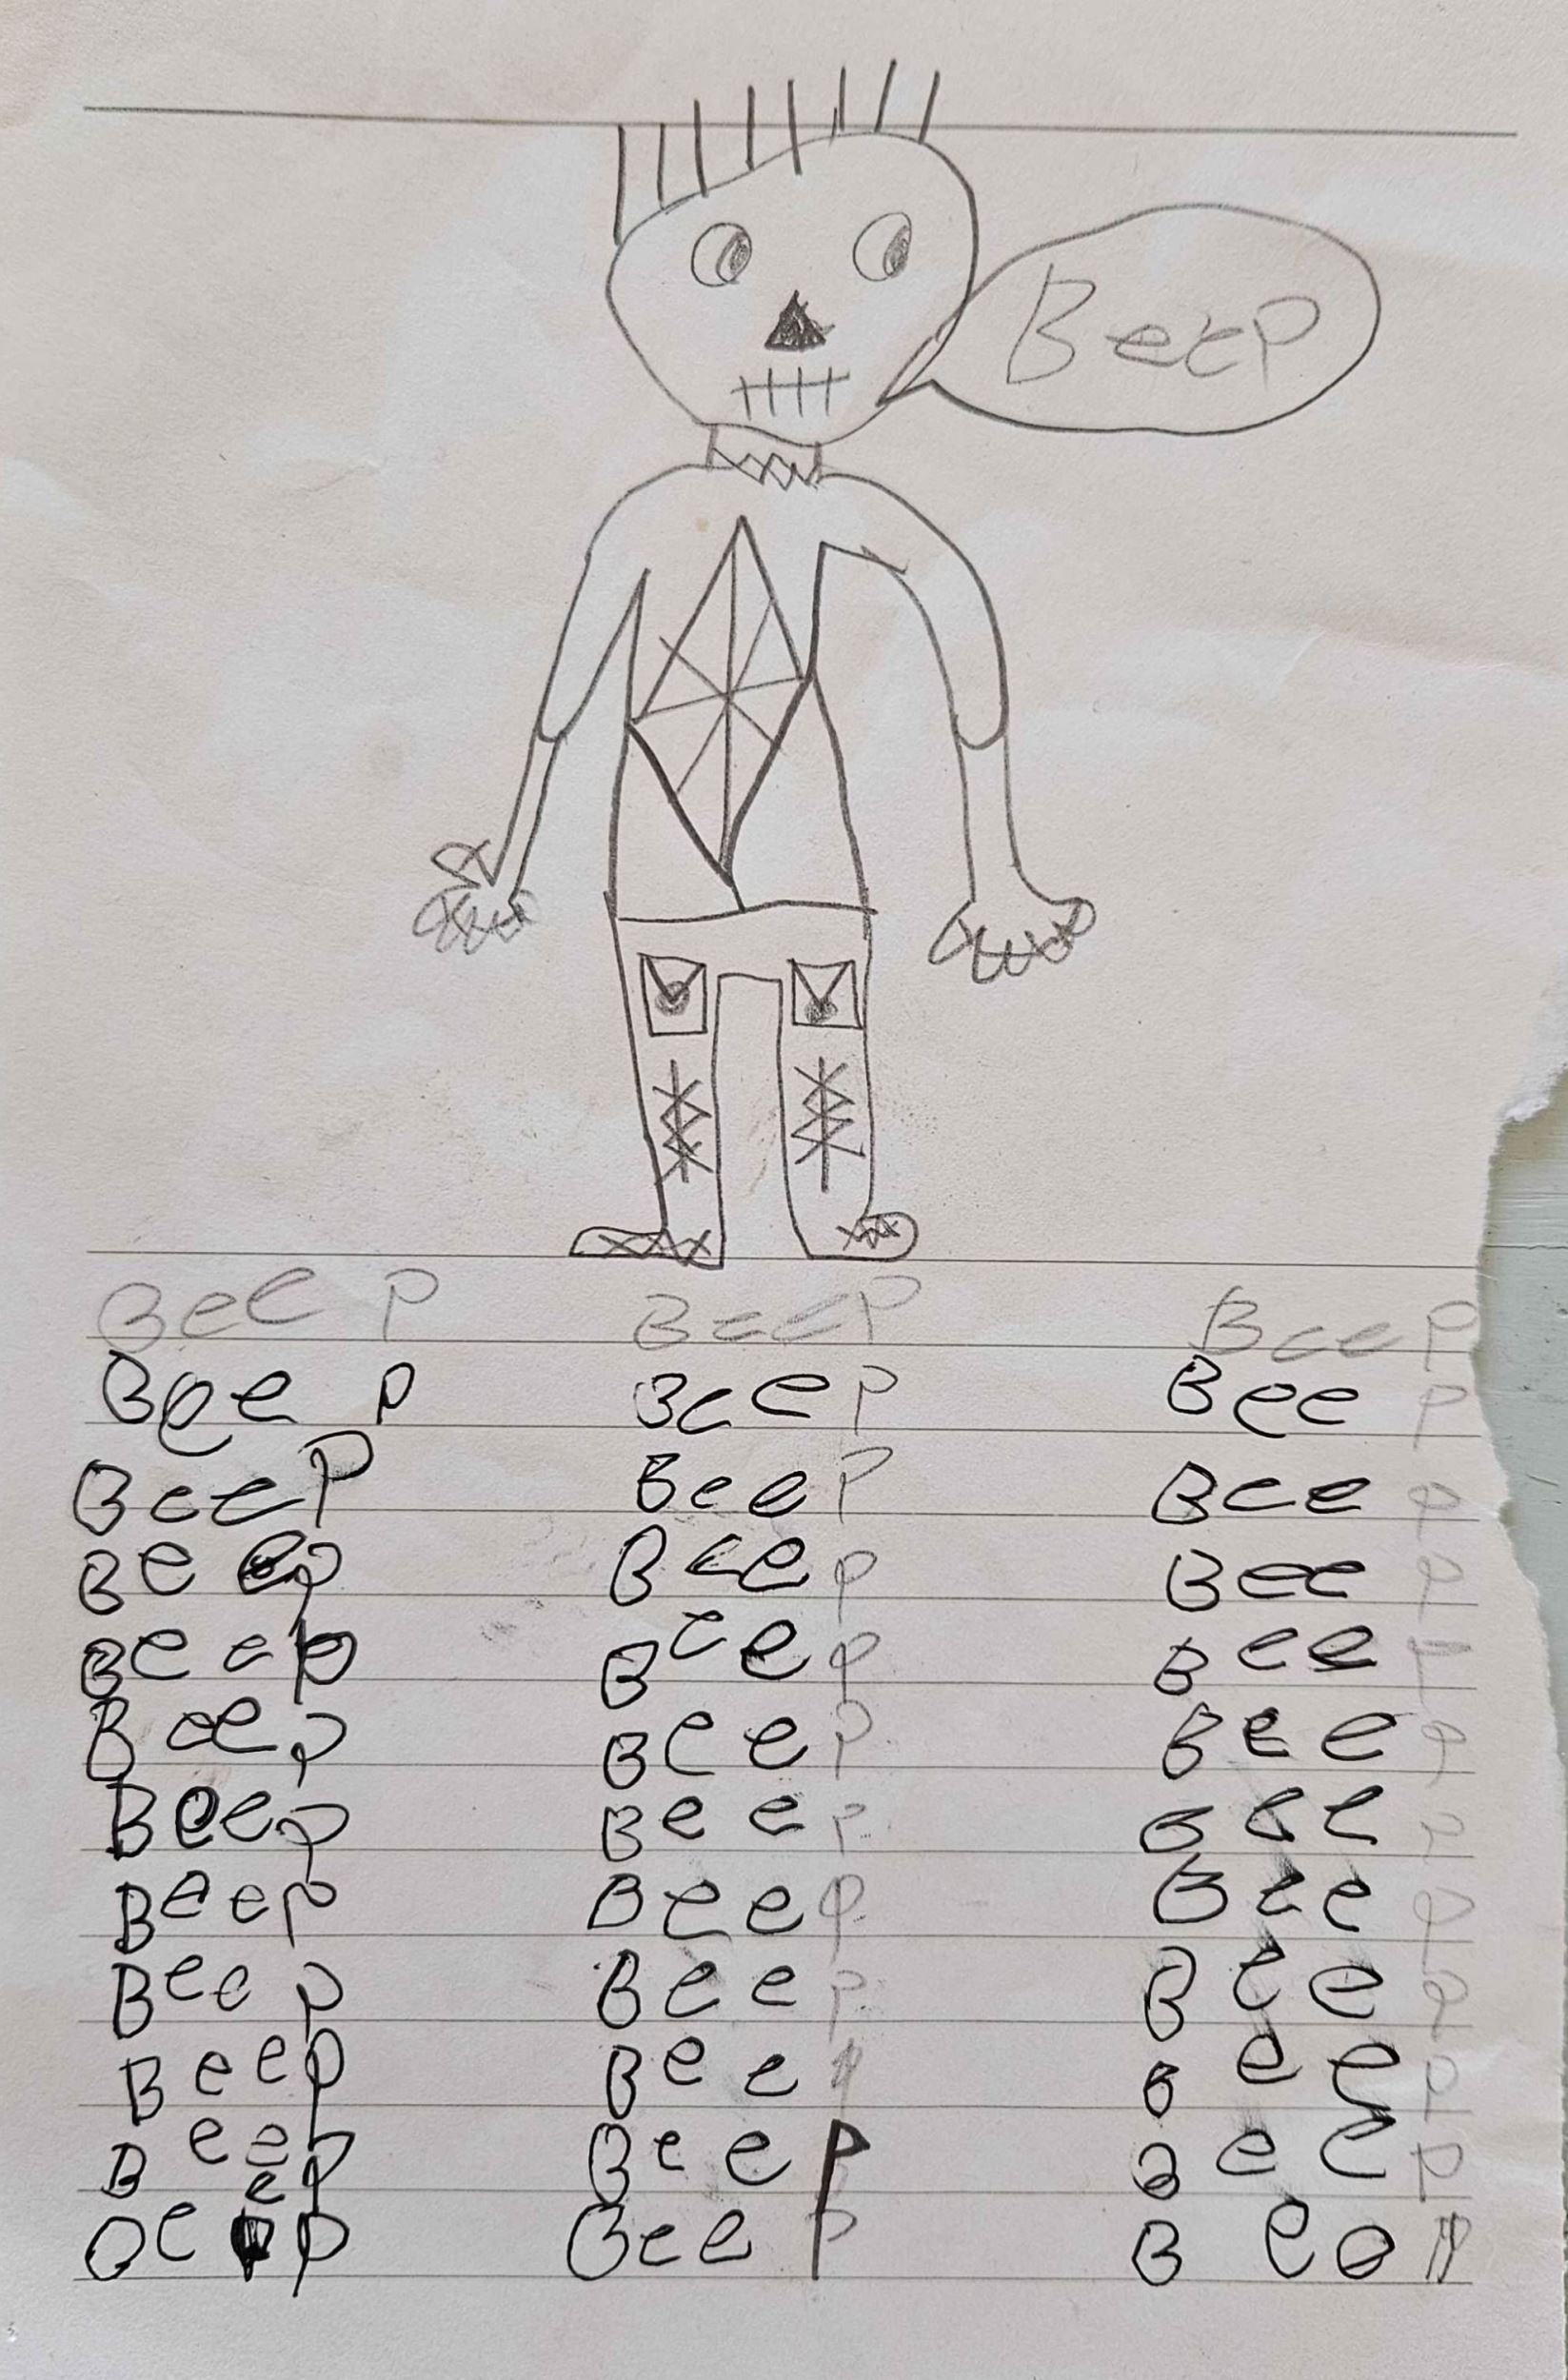 BeeP
Bee P BeeP BeeP
Bee P BeeP Bee P
BeeP BeeP Bee P
Beep Beep Bee P
Beep Beep Bee P
Beep BeeP Bee P
Beep BeeP Bee P
Beep BeeP Bee P
Beep BeeP Bee P
Beep Bee Bee P
Beep BeeP Bee P
BeeP Bee